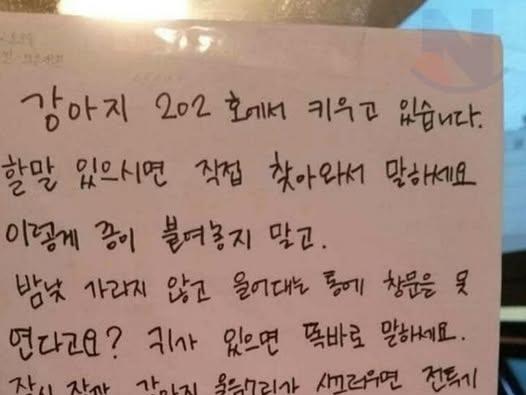 강아지 202 호에서 키우고 있습니다.
할말 있으시면 직접 찾아와서 말하세요
이렇게 종이 붙여놓지 말고.
밤낮 가라지 않고 울어대는 통에 창문은 못
연다고요? 귀가 있으면 똑바로 말하세요.
잠시 잠깐 강아지 울음소리가 시끄러우면 전투기